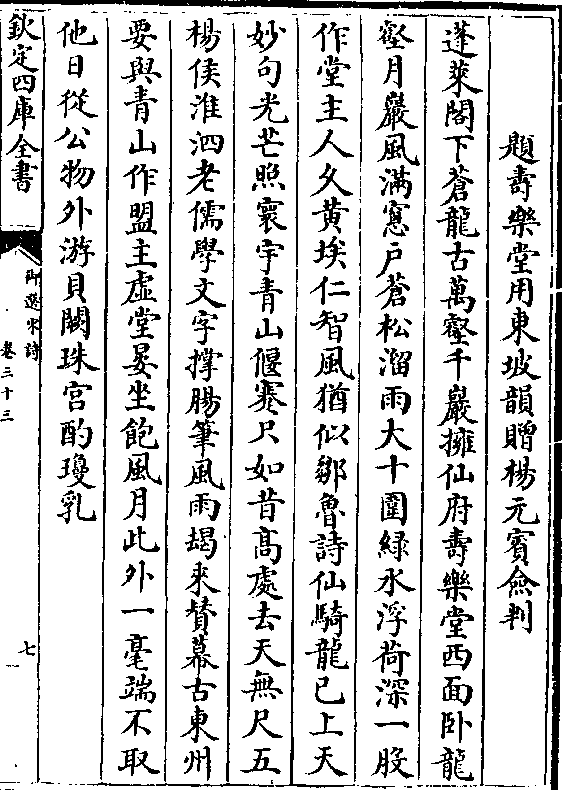 題壽樂堂用東坡韻贈楊元賓僉判
蓬萊閣下蒼龍古萬壑千巖擁仙府壽樂堂西面卧龍
壑月巖風滿窓戶蒼松溜雨大十圍緑水浮荷深一股
作堂主人久黄埃仁智風猶似鄒魯詩仙騎龍已上天
妙句光芒照寰宇青山偃蹇只如昔髙處去天無尺五
楊侯淮泗老儒學文字撑腸筆風雨朅來賛幕古東州
要與青山作盟主虚堂晏坐飽風月此外一毫端不取
他日從公物外游貝闕珠宫酌瓊乳
欽定四庫全書
御選宋詩
卷三十三
七